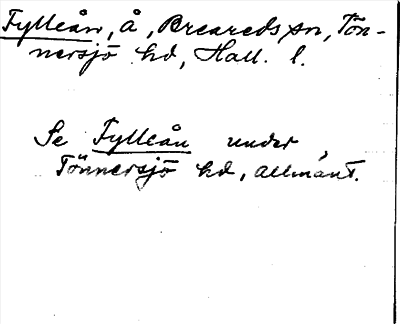 Fylleån, å, Breareds sn, Tön-
nersjö hd, Hall. l.
Se Fylleån under
Tönnersjö hd, allmänt.